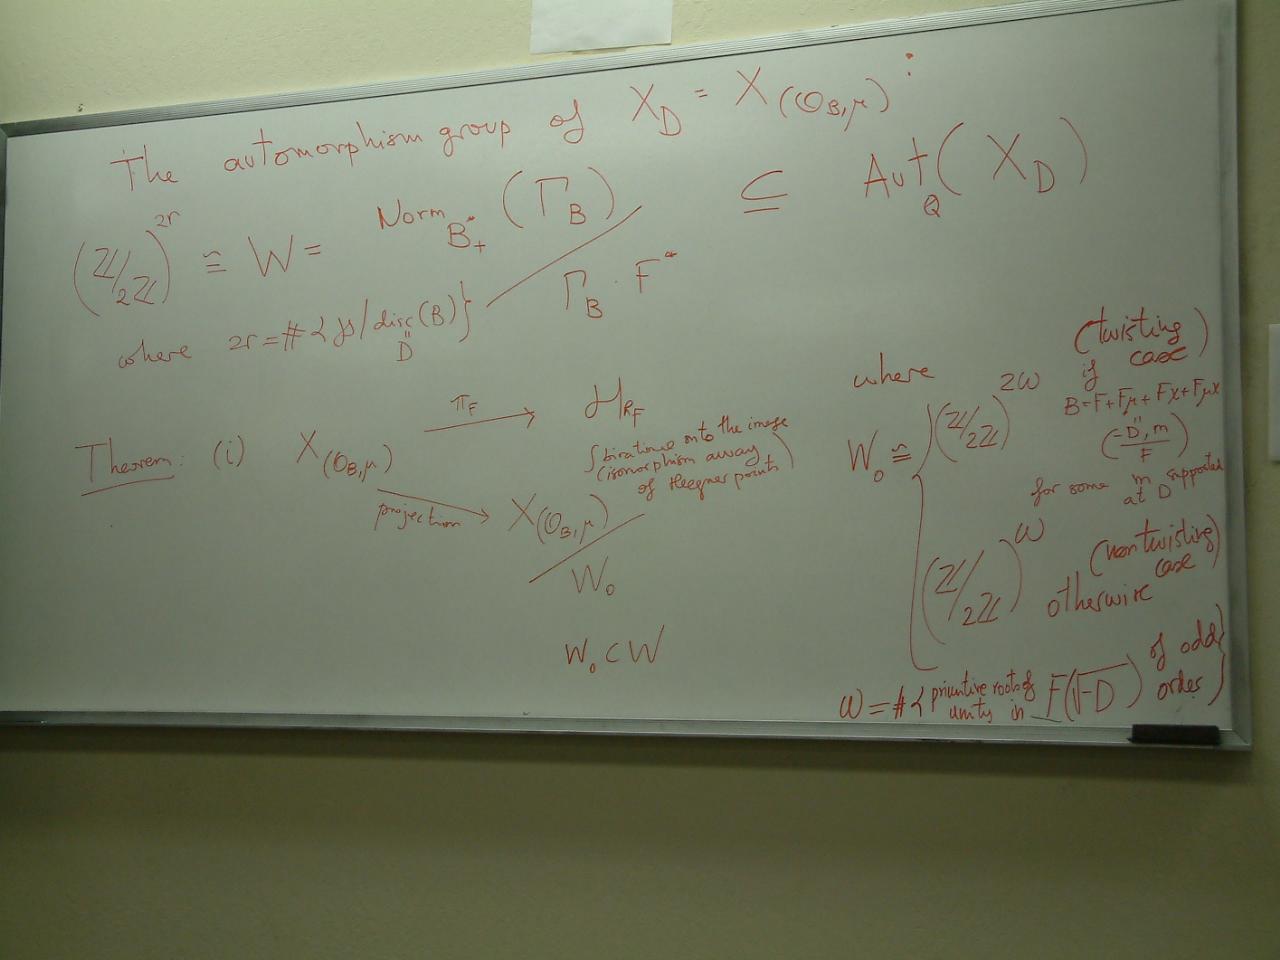 The automorphism group of X_D = X_(O_B,μ) :
(Z/2Z)^2r ≅ W = Norm_B*+ (Γ_B) / Γ_B · F* ⊆ Aut_Q (X_D)
where 2r = # { p / disc (B) }
"
D
Theorem: (i) X_(O_B,μ) π_F → H_R_F
birational onto the image
(isomorphism away
of Heegner points)
projection → X_(O_B,μ) / W_0
W_0 ⊂ W
where
W_0 ≅ { (Z/2Z)^2ω (twisting case)
if
B = F + Fμ + Fχ + Fμχ
"
(-D, m / F)
for some m supported
at D
(Z/2Z)^ω (non twisting case)
otherwise
ω = # { primitive roots of unity in F(√-D) of odd order }